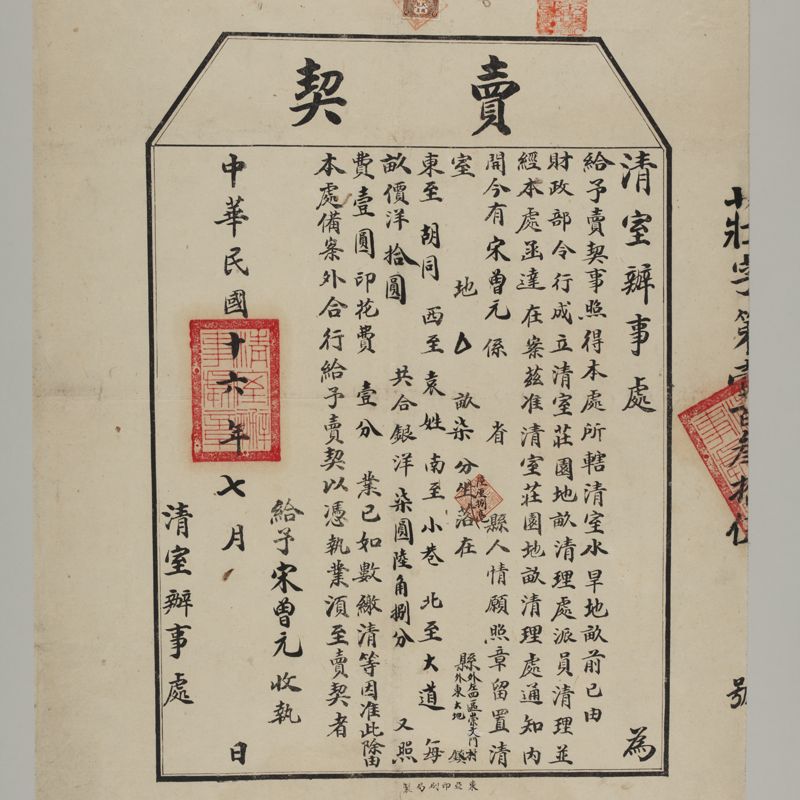 賣契
清室辦事處 為
給予賣契事照得本處所轄清室水旱地畝前已由
財政部令行成立清室莊園地畝清理處派員清理並
經本處函達在案茲准清室莊園地畝清理處通知內
開今有宋曾元係 省 縣人情願照章留置清
室 地 畝柒分坐落在 縣外左四區崇文門 村
外東大地 鎮
東至胡同 西至袁姓 南至小巷 北至大道 每
畝價洋拾圓 共合銀洋柒圓陸角捌分 又照
費壹圓印花費壹分 業已如數繳清等因准此除由
本處備案外合行給予賣契以憑執業須至賣契者
給予宋曾元收執
中華民國十六年七月 日
清室辦事處
莊字第壹百叁拾 號
東亞印刷局製